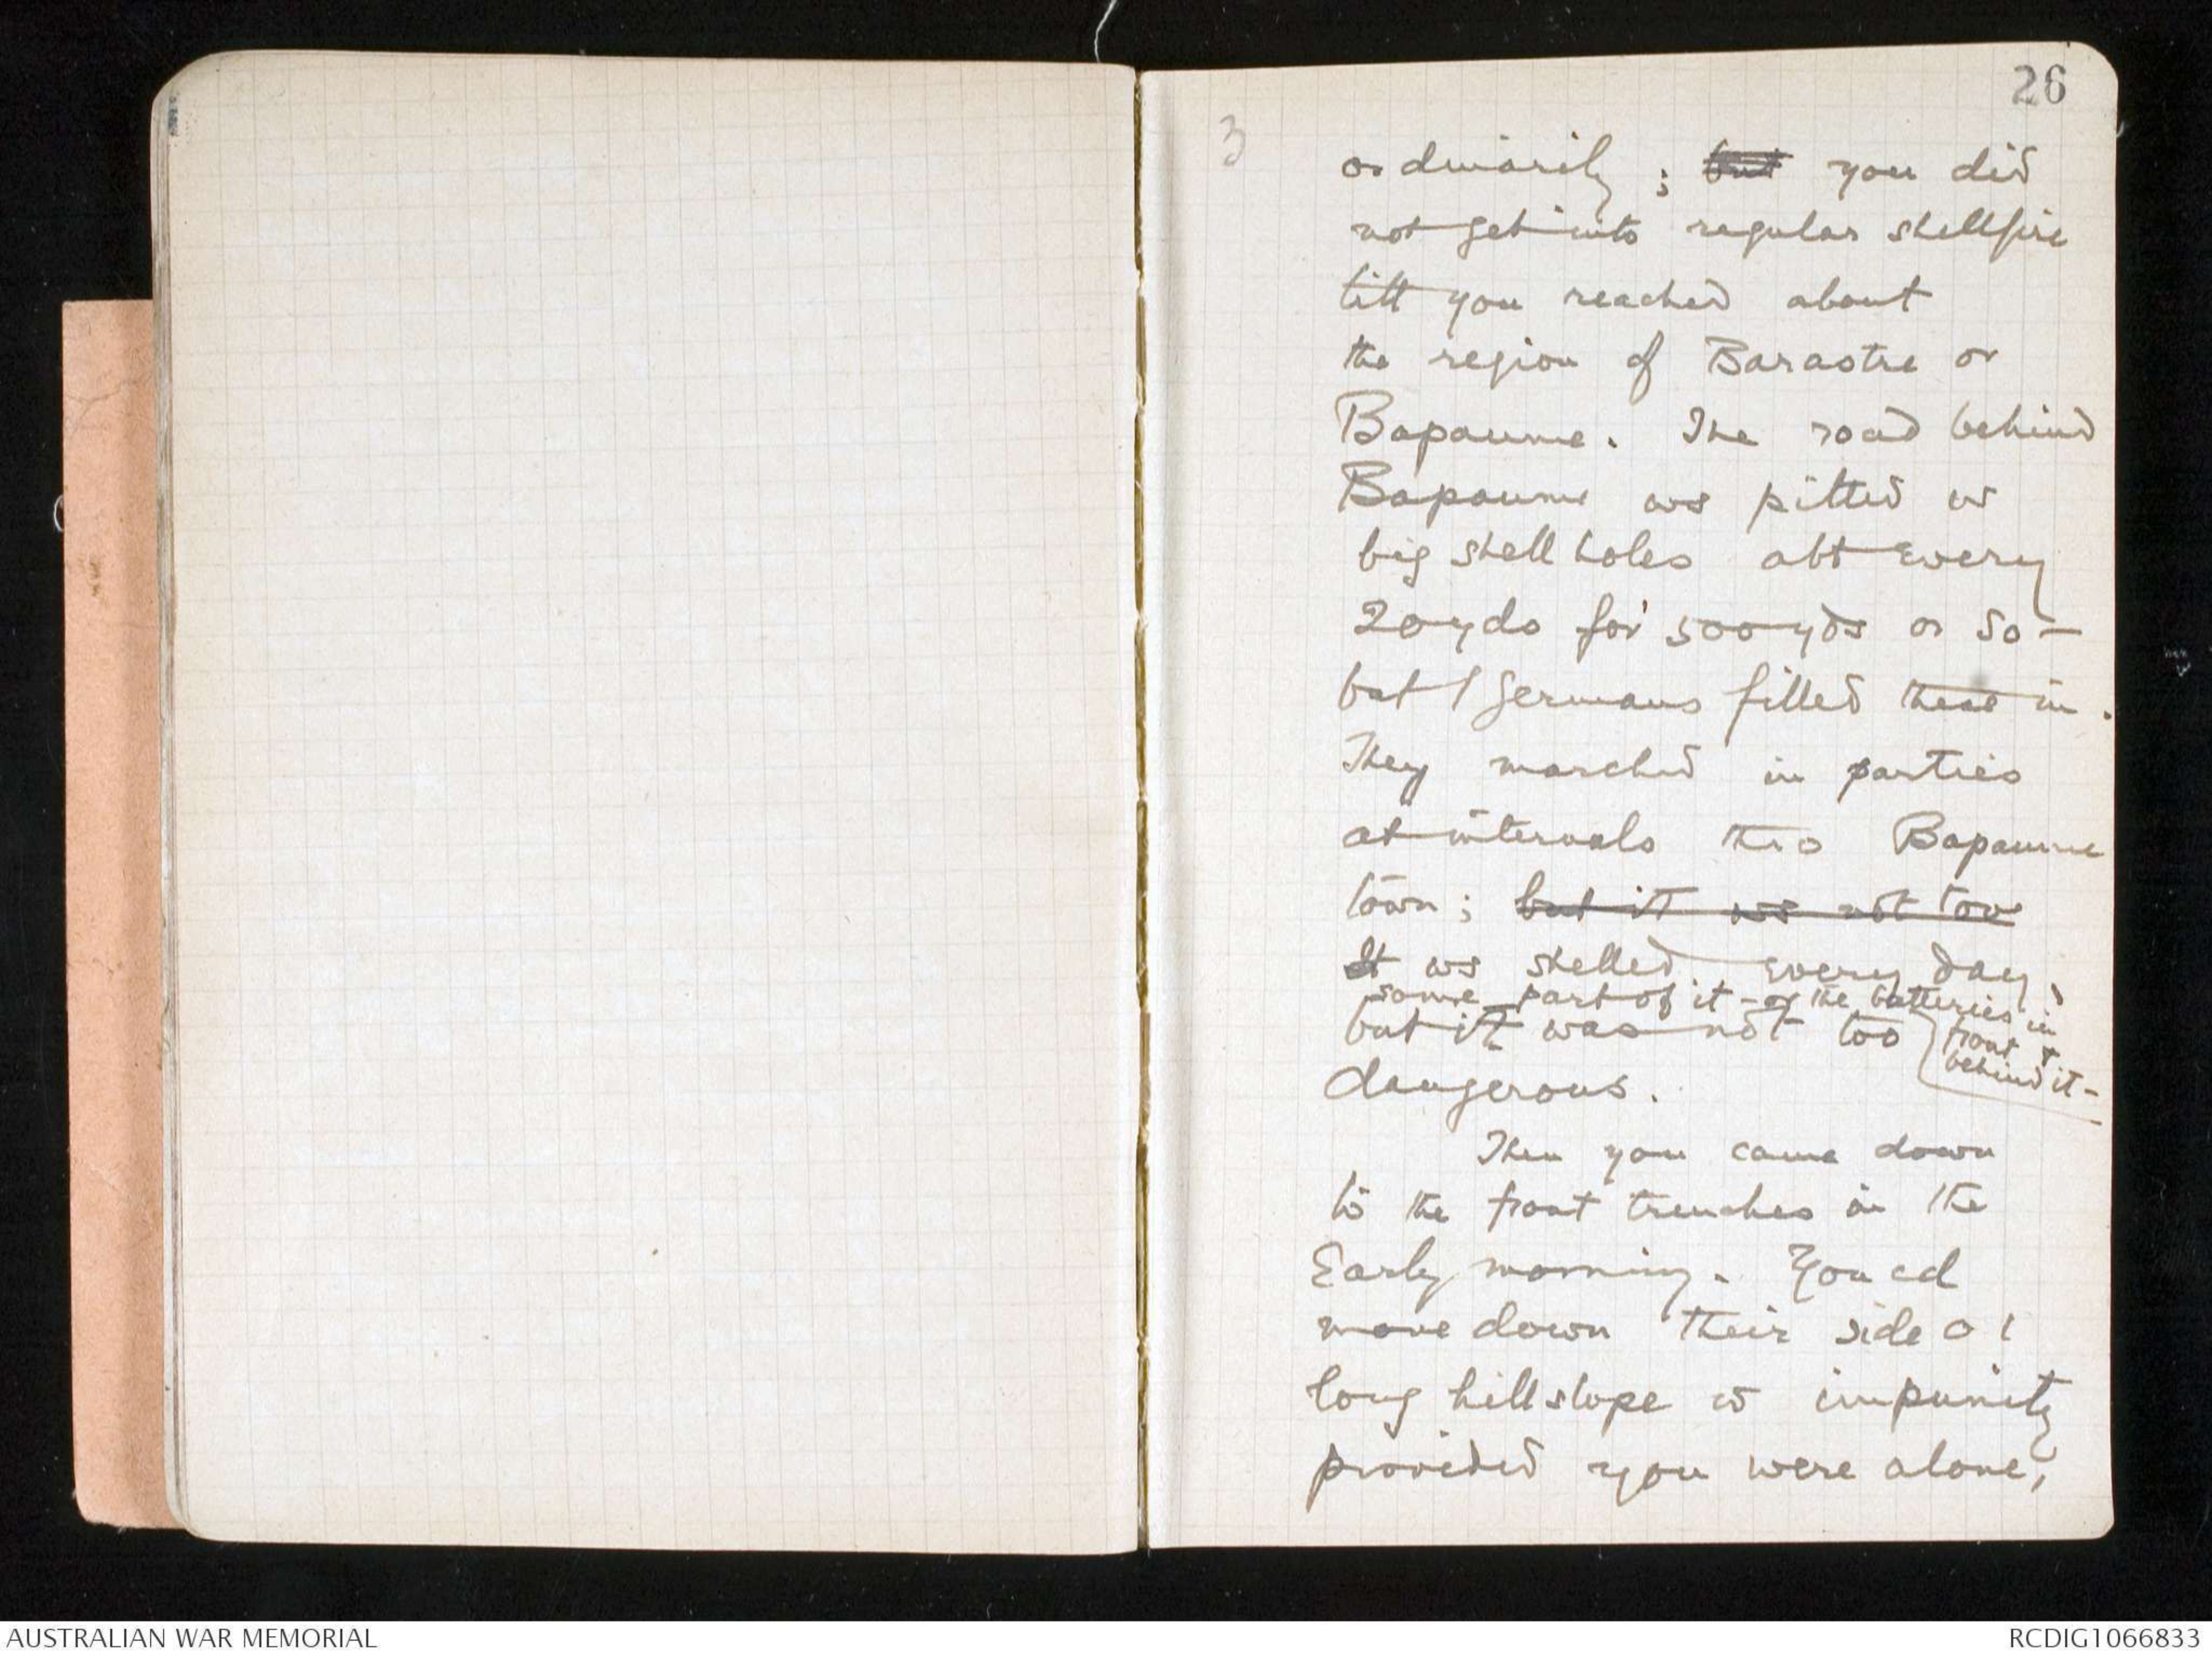 26
3
ordinarily; ~~but~~ you did
not get into regular shellfire
till you reached about
the region of Barastre or
Bapaume. The road behind
Bapaume ws pitted w
big shell holes abt every
20 yds for 500 yds or so –
but / Germans filled these in.
They marched in parties
at intervals thro Bapaume
town; ~~but it ws not too~~
It ws shelled every day,
some part of it – or the batteries in
front &
behind it –
but it was not too
dangerous.
Then you came down
to the front trenches in the
Early morning. You cd
move down their side o /
long hillslope w impunity
provided you were alone,
AUSTRALIAN WAR MEMORIAL
RCDIG1066833